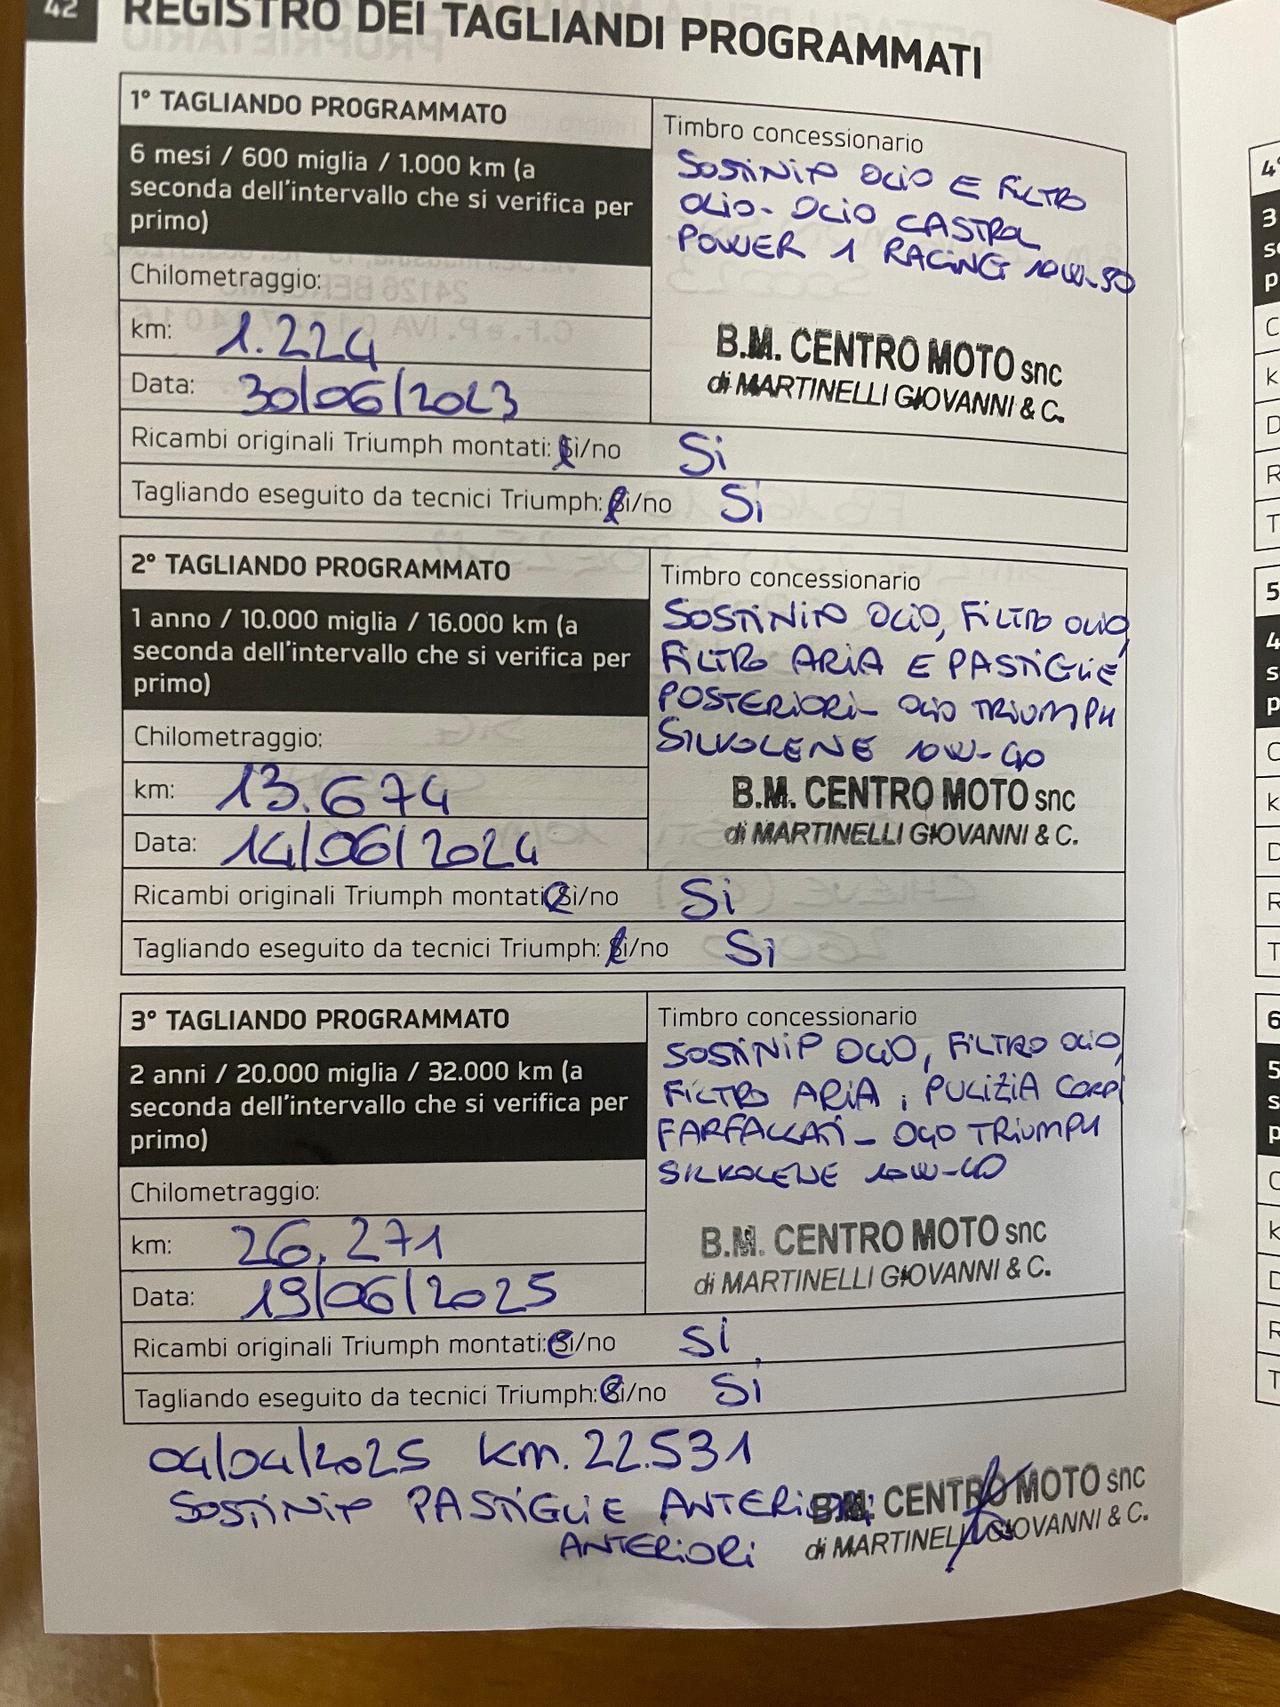 42
REGISTRO DEI TAGLIANDI PROGRAMMATI
1° TAGLIANDO PROGRAMMATO
6 mesi / 600 miglia / 1.000 km (a
seconda dell'intervallo che si verifica per
primo)
Chilometraggio:
km: 1.224
Data: 30/06/2023
Timbro concessionario
SOSTINIP OLIO E FILTRO
OLIO- OLIO CASTROL
POWER 1 RACING 10W-50
B.M. CENTRO MOTO snc
di MARTINELLI GIOVANNI & C.
Ricambi originali Triumph montati: Sì/no Si
Tagliando eseguito da tecnici Triumph: Sì/no Si
2° TAGLIANDO PROGRAMMATO
1 anno / 10.000 miglia / 16.000 km (a
seconda dell'intervallo che si verifica per
primo)
Chilometraggio:
km: 13.674
Data: 14/06/2024
Timbro concessionario
SOSTINIP OLIO, FILTRO OLIO,
FILTRO ARIA E PASTIGLIE
POSTERIORI- OLIO TRIUMPH
SILKOLENE 10W-40
B.M. CENTRO MOTO snc
di MARTINELLI GIOVANNI & C.
Ricambi originali Triumph montati: Sì/no Si
Tagliando eseguito da tecnici Triumph: Sì/no Si
3° TAGLIANDO PROGRAMMATO
2 anni / 20.000 miglia / 32.000 km (a
seconda dell'intervallo che si verifica per
primo)
Chilometraggio:
km: 26.271
Data: 19/06/2025
Timbro concessionario
SOSTINIP OLIO, FILTRO OLIO,
FILTRO ARIA, PULIZIA CORPI
FARFALLATI- OLIO TRIUMPH
SILKOLENE 10W-40
B.M. CENTRO MOTO snc
di MARTINELLI GIOVANNI & C.
Ricambi originali Triumph montati: Sì/no Si
Tagliando eseguito da tecnici Triumph: Sì/no Si
04/04/2025 Km. 22.531
SOSTINIP PASTIGLIE ANTERIORI
ANTERIORI
B.M. CENTRO MOTO snc
di MARTINELLI GIOVANNI & C.